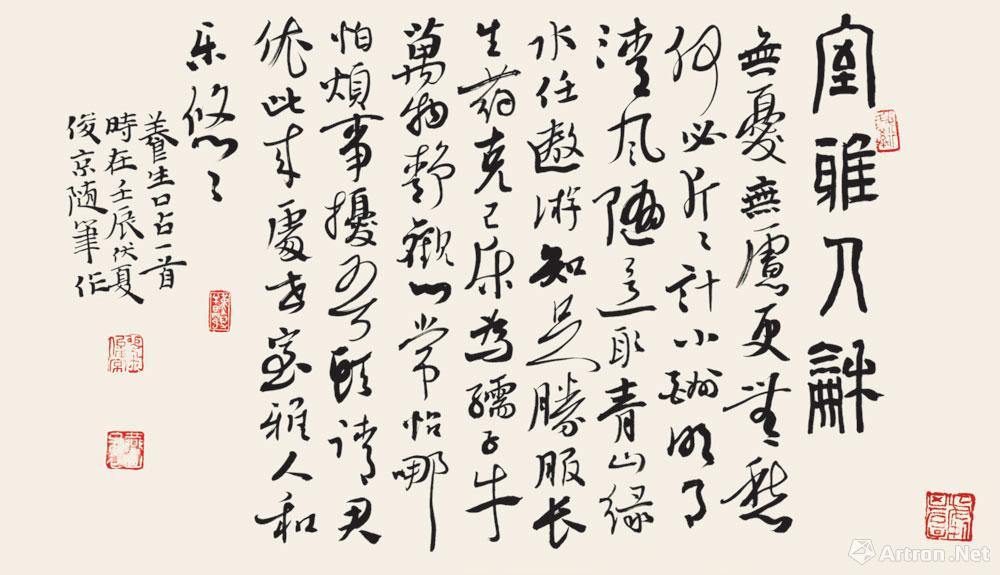 室雅人龢
無憂無慮更無愁
何必斤〻計小明月
清風隨意取青山緑
水任遨游知足勝服长
生药克己樂為孺子牛
萬物靜觀心常怡哪
怕煩事擾頭請君
依此來處世室雅人和
乐悠〻
養生口占一首
時在壬辰伏夏
俊京随筆作
Artron.Net